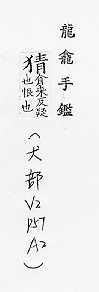 龍龕手鑑
猜倉來反疑
也恨也
(犬部
V2
P57
A2)